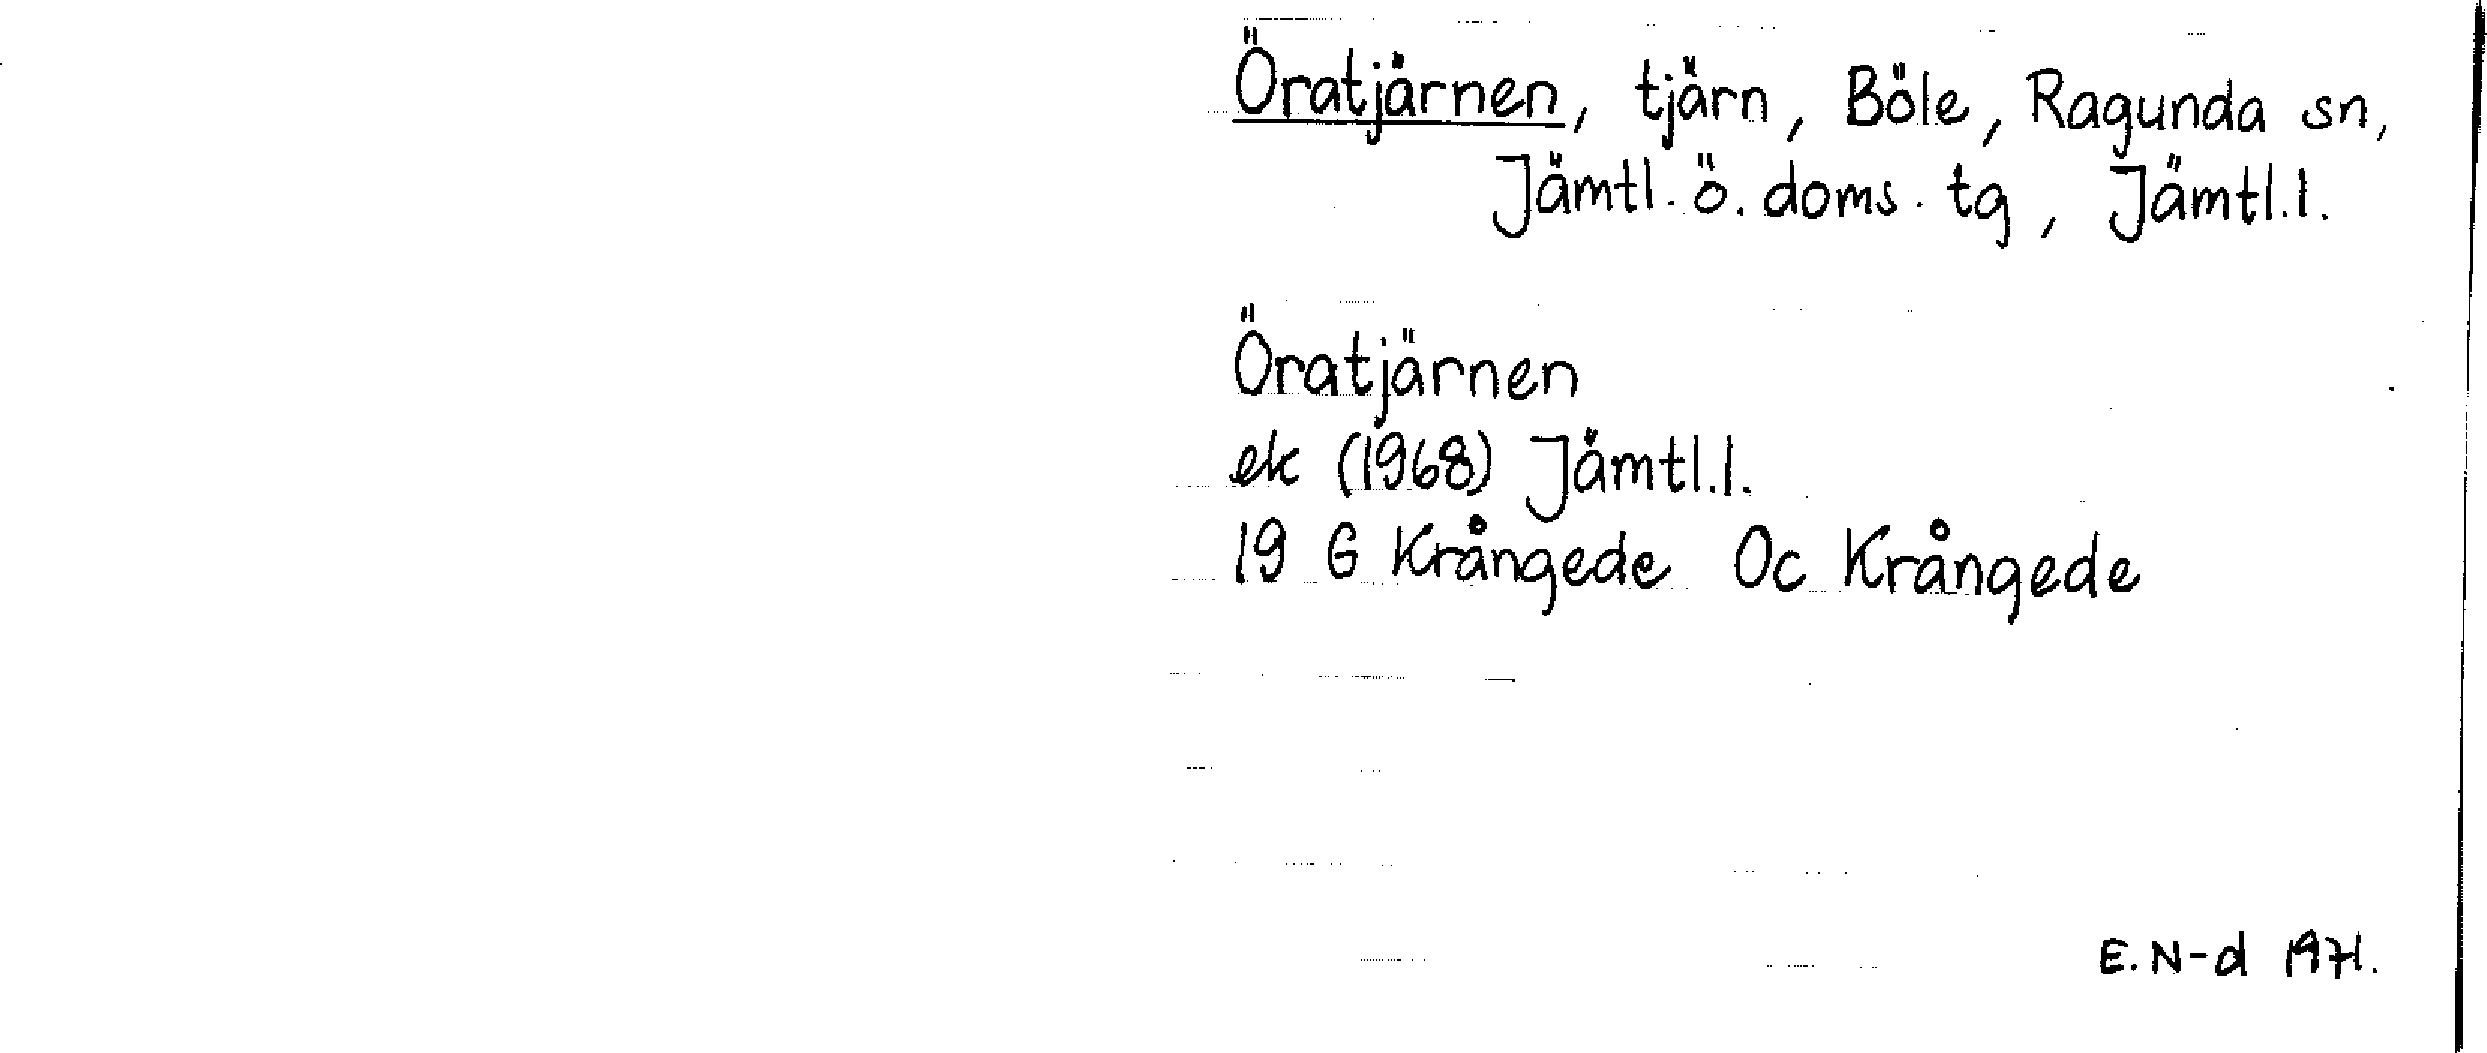 Öratjärnen, tjärn, Böle, Ragunda sn,
Jämtl. ö. doms. tg, Jämtl.l.
Öratjärnen
ek (1968) Jämtl.l.
19 G Krångede Oc Krångede
E. N-d 1971.